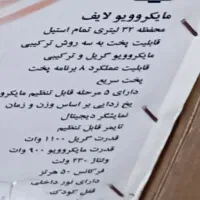 مایکروویو لایف
محفظه ۳۲ لیتری تمام استیل
قابلیت پخت به سه روش ترکیبی
مایکروویو گریل و ترکیبی
قابلیت عملکرد ۸ برنامه پخت
پخت سریع
دارای ۵ مرحله قابل تنظیم مایکرو
یخ زدایی بر اساس وزن و زمان
نمایشگر دیجیتال
تایمر قابل تنظیم
قدرت گریل ۱۱۰۰ وات
قدرت مایکروویو ۹۰۰ وات
ولتاژ ۲۳۰ ولت
فرکانس ۵۰ هرتز
دارای نور داخلی
قفل کودک